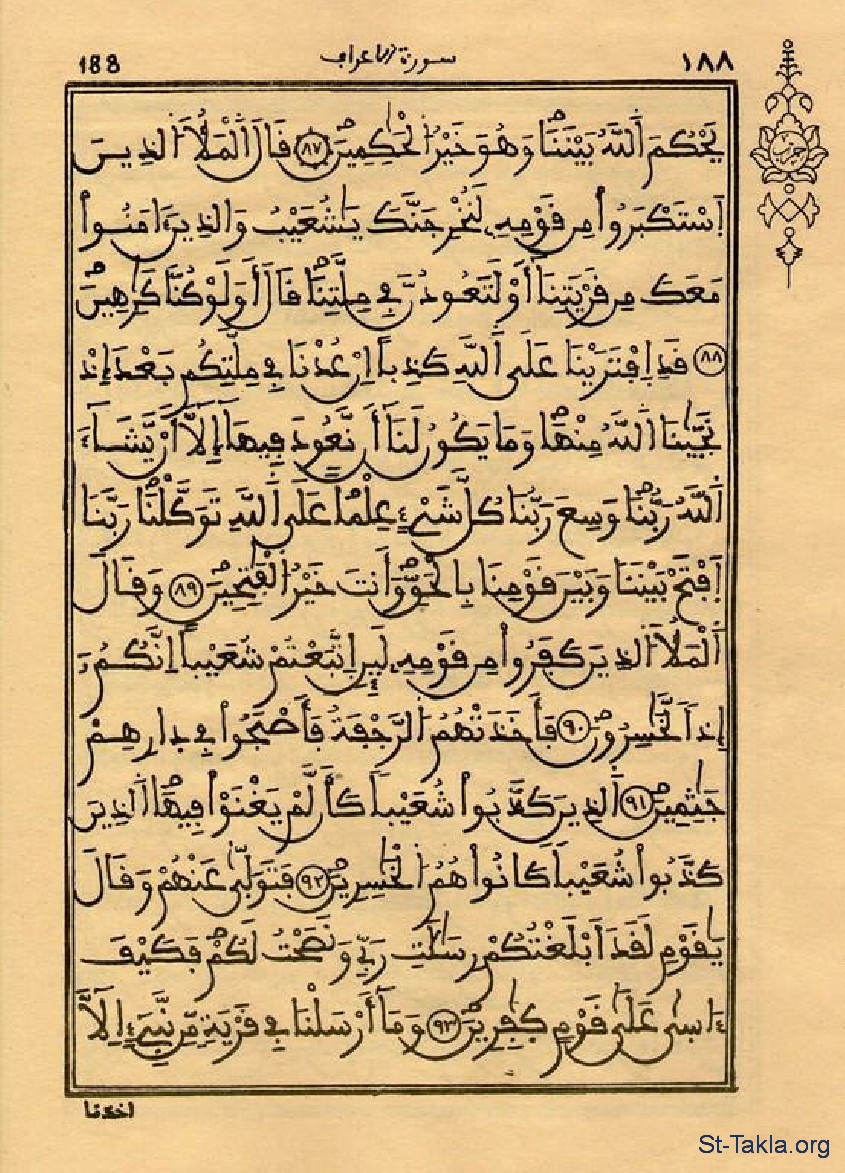 188 سورة الأعراف ١٨٨
يَحْكُمَ اَ۬للَّهُ بَيْنَنَاۖ وَهُوَ خَيْرُ اُ۬لْحَٰكِمِينَۖ ٨٧ قَالَ اَ۬لْمَلَأُ اَ۬لذِينَ
اَ۪سْتَكْبَرُواْ مِن قَوْمِهِۦ لَنُخْرِجَنَّكَ يَٰشُعَيْبُ وَالذِينَ ءَامَنُواْ
مَعَكَ مِن قَرْيَتِنَا أَوْ لَتَعُودُنَّ فِے مِلَّتِنَاۖ قَالَ أَوَلَوْ كُنَّا كَٰرِهِينَۖ
٨٨ قَدِ اِ۪فْتَرَيْنَا عَلَى اَ۬للَّهِ كَذِباً اِنْ عُدْنَا فِے مِلَّتِكُم بَعْدَ إِذْ
نَجَّيٰنَا اَ۬للَّهُ مِنْهَاۖ وَمَا يَكُونُ لَنَا أَن نَّعُودَ فِيهَا إِلَّا أَنْ يَّشَاءَ
اَ۬للَّهُ رَبُّنَاۖ وَسِعَ رَبُّنَا كُلَّ شَےْءٍ عِلْماًۖ عَلَى اَ۬للَّهِ تَوَكَّلْنَاۖ رَبَّنَا
اَ۪فْتَحْ بَيْنَنَا وَبَيْنَ قَوْمِنَا بِالْحَقِّۖ وَأَنتَ خَيْرُ اُ۬لْفَٰتِحِينَۖ ٨٩ وَقَالَ
اَ۬لْمَلَأُ اُ۬لذِينَ كَفَرُواْ مِن قَوْمِهِۦ لَئِنِ اِ۪تَّبَعْتُمْ شُعَيْباً اِنَّكُمُۥ
إِذاً لَّخَٰسِرُونَۖ ٩٠ فَأَخَذَتْهُمُ اُ۬لرَّجْفَةُ فَأَصْبَحُواْ فِے دِارِهِمْ
جَٰثِمِينَۖ ٩١ اَ۬لذِينَ كَذَّبُواْ شُعَيْباً كَأَن لَّمْ يَغْنَوْاْ فِيهَاۖ اَ۬لذِينَ
كَذَّبُواْ شُعَيْباً كَانُواْ هُمُ اُ۬لْخَٰسِرِينَۖ ٩٢ فَتَوَلّ۪يٰ عَنْهُمْ وَقَالَ
يَٰقَوْمِ لَقَدَ اَبْلَغْتُكُمْ رِسَٰلَٰتِ رَبِّے وَنَصَحْتُ لَكُمْۖ فَكَيْفَ
ءَاس۪يٰ عَلَيٰ قَوْمٍ كٰ۪فِرِينَۖ ٩٣ وَمَا أَرْسَلْنَا فِے قَرْيَةٍ مِّن نَّبِےٓءٍ اِلَّا
أخذنا
St-Takla.org